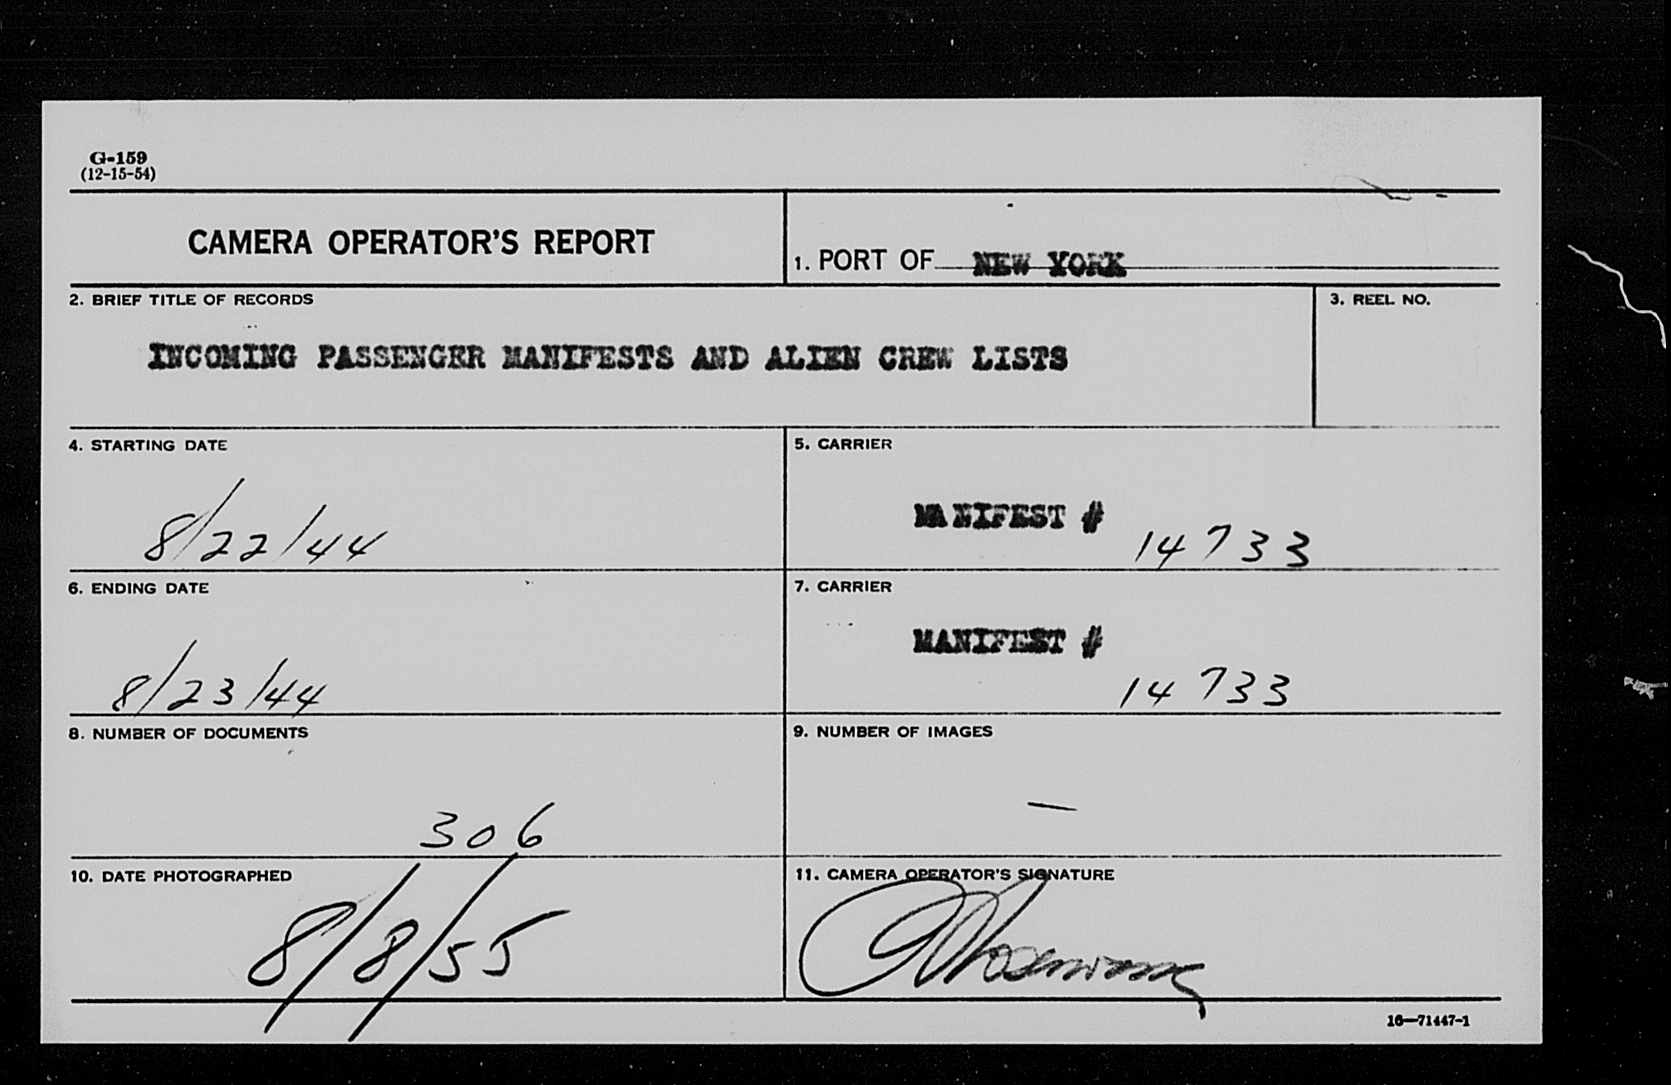 G-159
(12-15-54)
CAMERA OPERATOR'S REPORT
1. PORT OF NEW YORK
2. BRIEF TITLE OF RECORDS
INCOMING PASSENGER MANIFESTS AND ALIEN CREW LISTS
3. REEL NO.
4. STARTING DATE
8/22/44
5. CARRIER
MANIFEST # 14733
6. ENDING DATE
8/23/44
7. CARRIER
MANIFEST # 14733
8. NUMBER OF DOCUMENTS
306
9. NUMBER OF IMAGES
—
10. DATE PHOTOGRAPHED
8/8/55
11. CAMERA OPERATOR'S SIGNATURE
16—71447-1